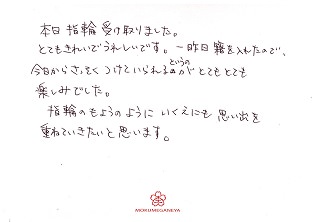 本日 指輪 受け取りました。
とてもきれいでうれしいです。一昨日籍を入れたので、
今日からさっそくつけていられるというのがとてもとても
楽しみでした。
指輪のもようのように いくえにも 思い出を
重ねていきたいと思います。
MOKUMEGANEYA